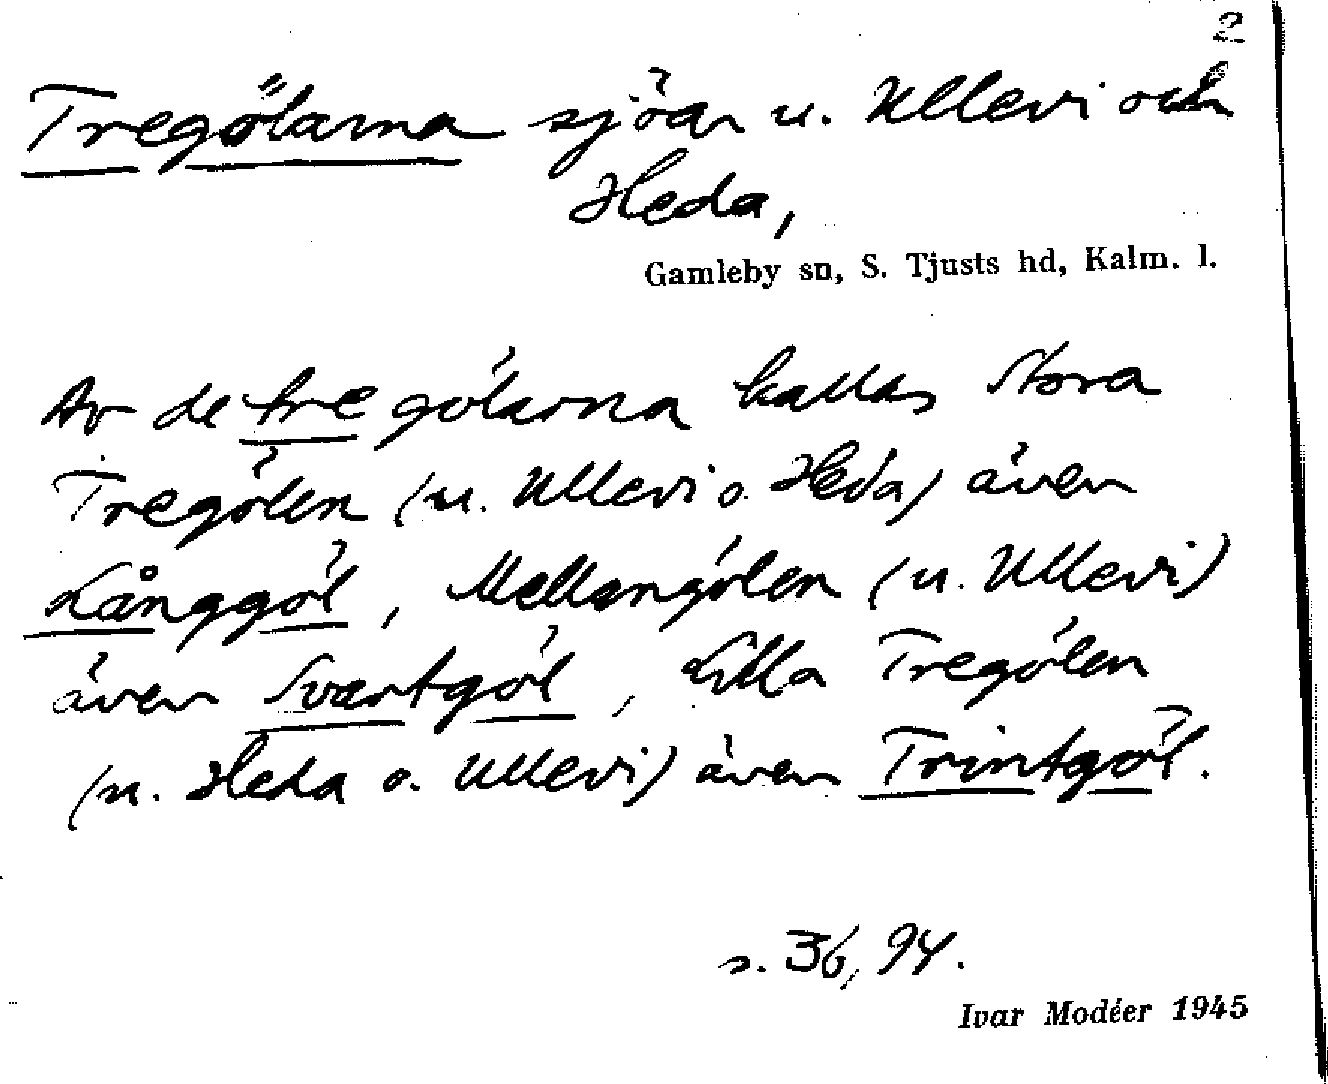 2
Tregölarna sjöar u. Ullevi och
Heda,
Gamleby sn, S. Tjusts hd, Kalm. l.
Av de tre gölarna kallas Stora
Tregölen (u. Ullevi o. Heda) även
Långgöl, Mellangölen (u. Ullevi)
även Svartgöl, Lilla Tregölen
(u. Heda o. Ullevi) även Trintgöl.
s. 36, 94.
Ivar Modéer 1945